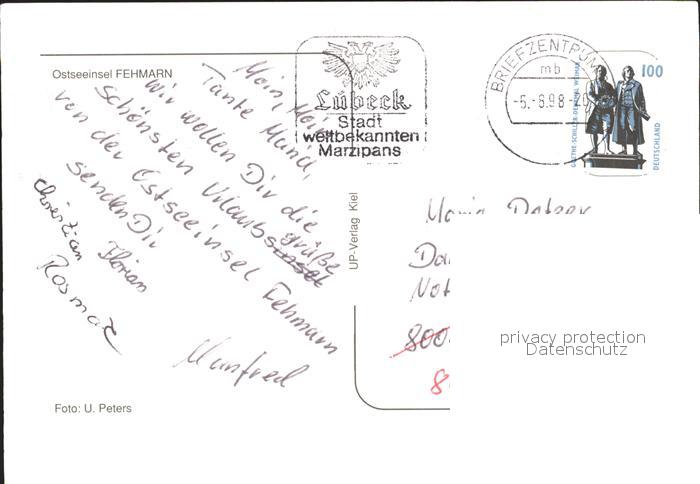 Ostseeinsel FEHMARN
Moin, Moin
Tante Maria,
wir wollen Dir die
schönsten Urlaubsgrüße
von der Ostseeinsel Fehmarn
senden Dir
Christian
Florian
Rosmar
Manfred
Foto: U. Peters
UP-Verlag Kiel
Lübeck
Stadt
weltbekannten
Marzipans
BRIEFZENTRUM
mb
-5.-8.98-20
100
GOETHE-SCHILLER-DENKMAL WEIMAR
DEUTSCHLAND
Maria
Not
800
8
privacy protection
Datenschutz